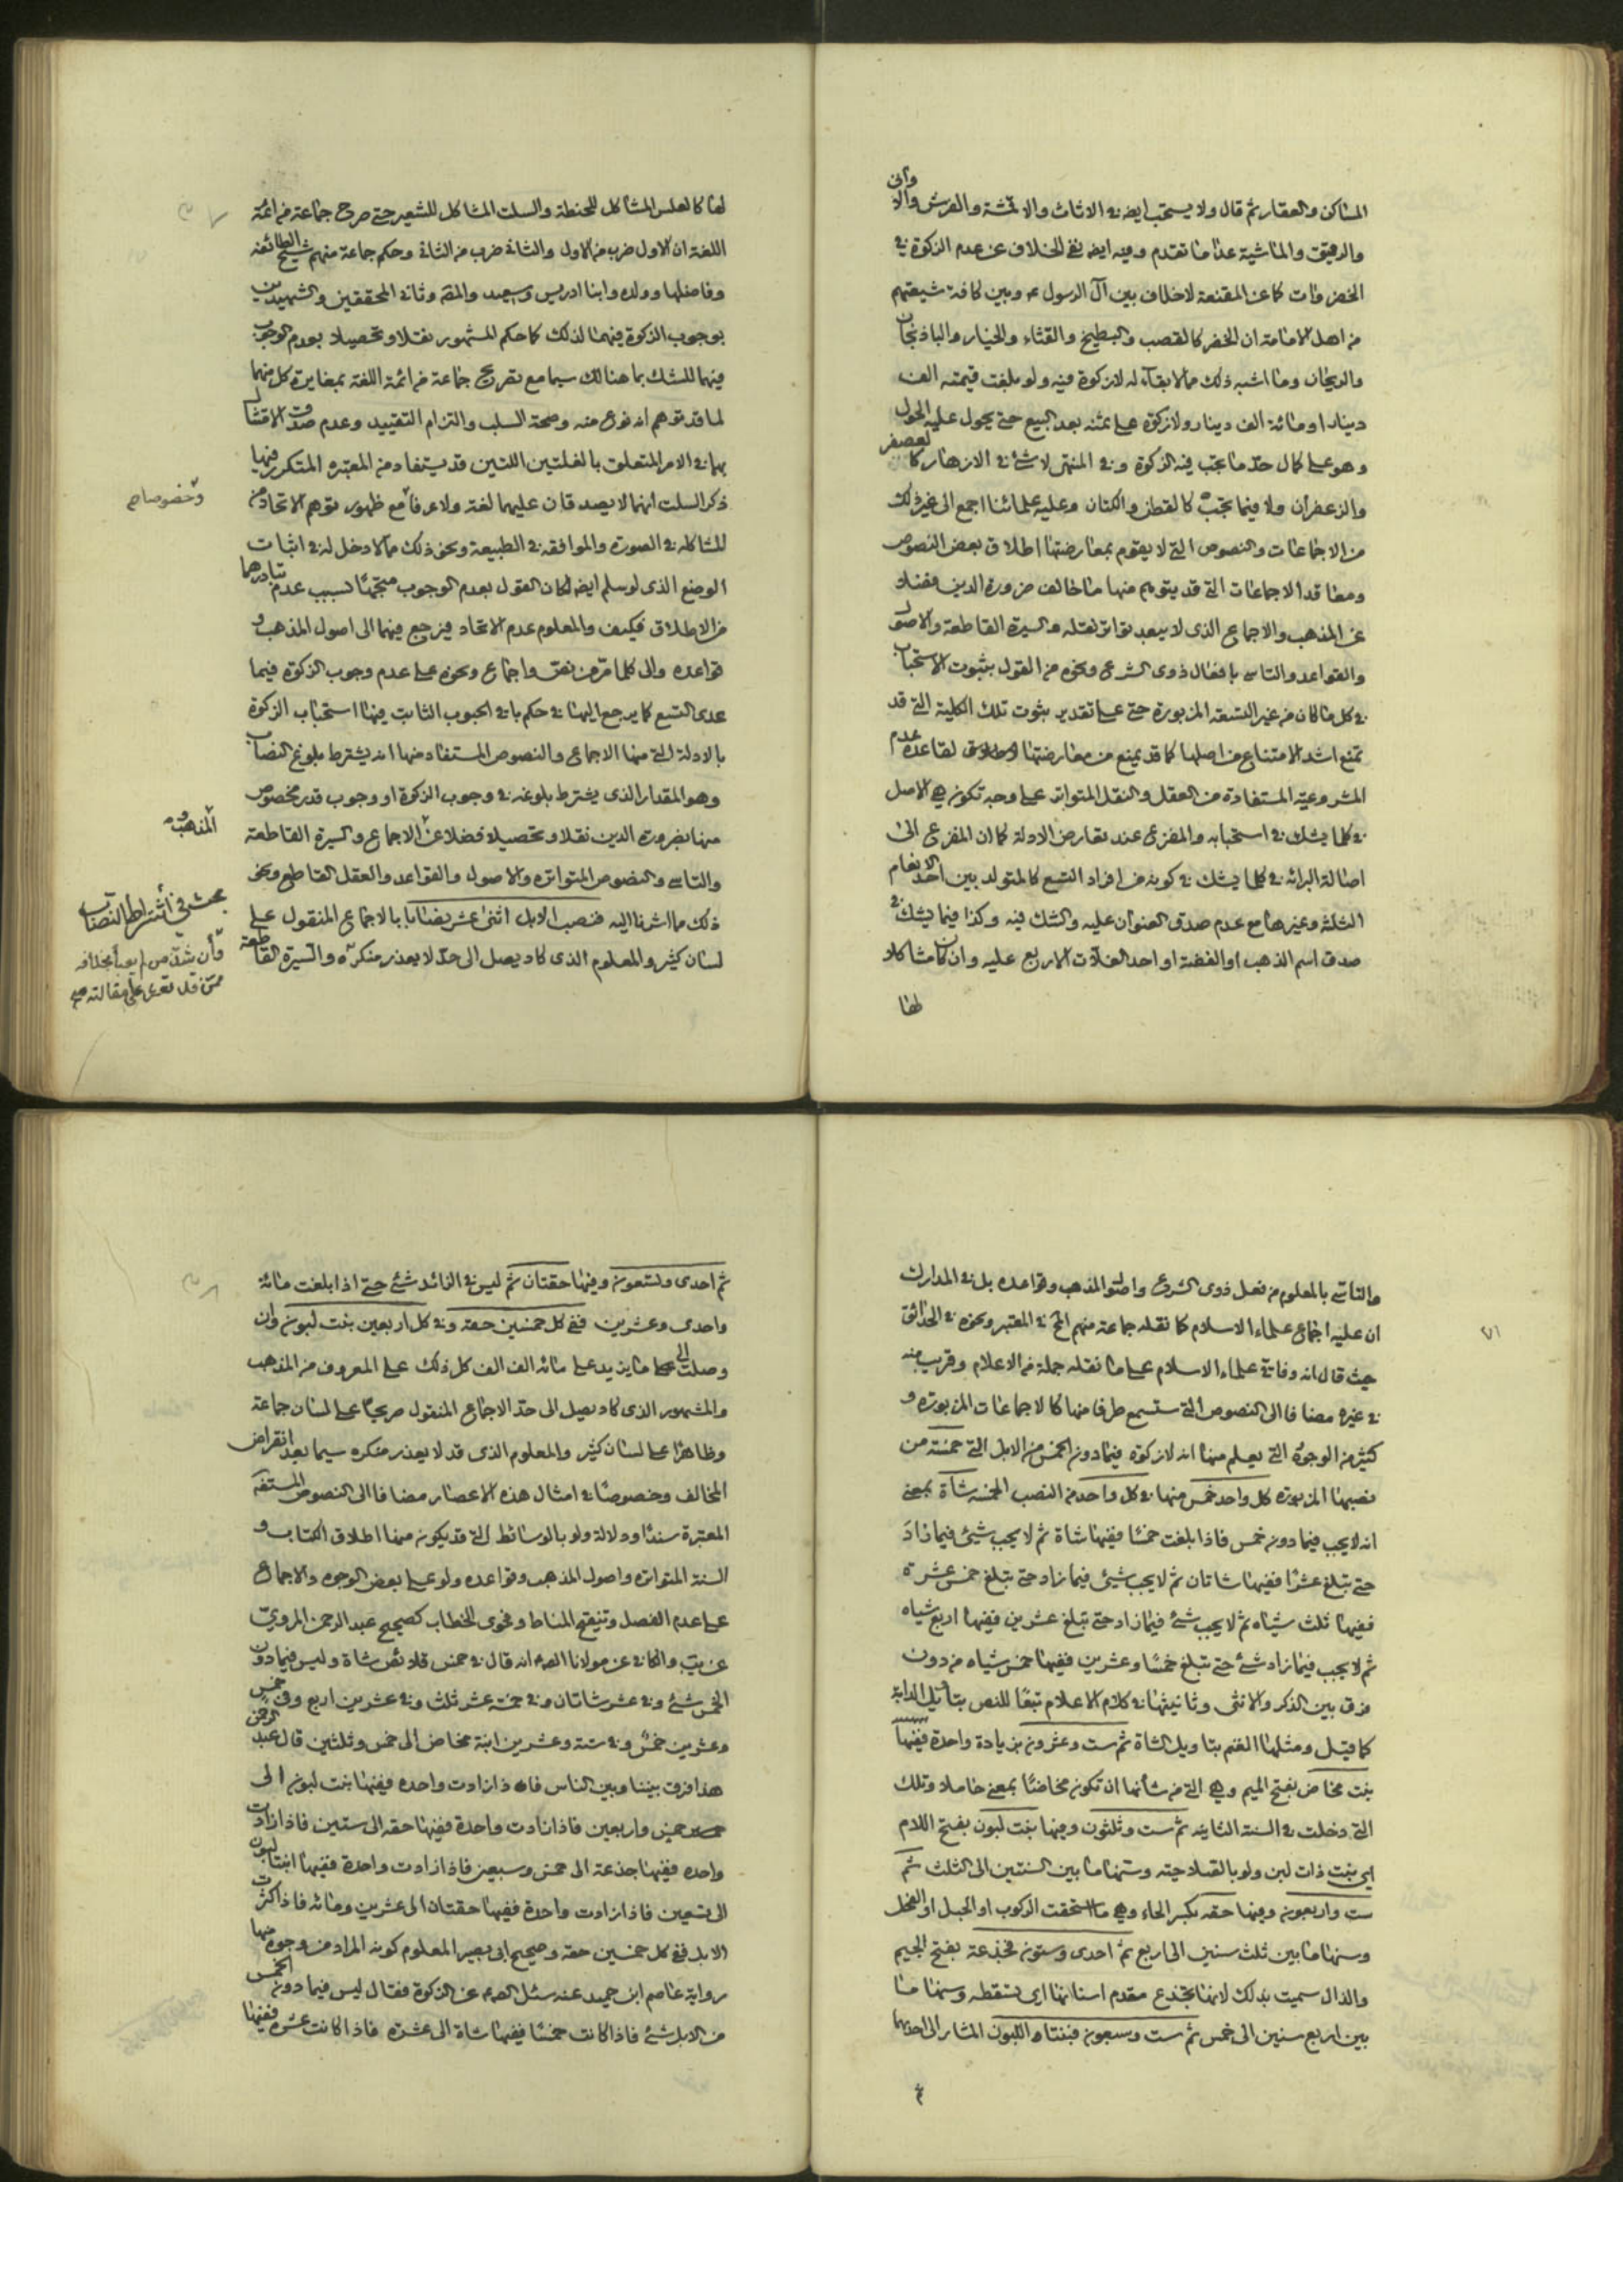 المساكن والعقار ثم قال ولا يستحب ايضا في الاثاث والاقمشة والفرش والاواني
والرقيق والماشية عدا ما تقدم وفيه ايضا نفي الخلاف عن عدم الزكوة في
الخضراوات كما عن المقنعة لاخلاف بين آل الرسول ص وبين كافة شيعتهم
من اهل الامامة ان الخضر كالقصب والبطيخ والقثاء والخيار والباذنجان
والريحان وما اشبه ذلك مما لا بقآء له لا زكوة فيه ولو بلغت قيمته الف
دينار او مائة الف دينار ولا زكوة على ثمنه بعد البيع حتى يحول عليه الحول
وهو على كمال حد ما يجب فيه الزكوة وفي المنتهى لا شئ في الازهار كالعصفر
والزعفران ولا فيما يجب كالقطن والكتان وعليه علمائنا اجمع الى غير ذلك
من الاجماعات والنصوص التي لا يقوم بمعارضتها اطلاق بعض النصوص
ومعاقد الاجماعات التي قد يتوهم منها ما خالف ضرورة الدين فضلا
عن المذهب والاجماع الذي لا يبعد تواتر نقله والسيرة القاطعة والاصول
والقواعد والتاسي بافعال ذوى الشرع ونحوه من القول بثبوت الاستحباب
في كل ما كان من غير التسعة المزبورة حتى على تقدير ثبوت تلك الكلية التي قد
تمنع اشد الامتناع من اصلها كما قد يمنع من معارضتها لقاعدة عدم
المشروعية المستفادة من العقل والنقل المتواتر على وجه تكون هي الاصل
في كلما يشك في استحبابه والمفزع عند تعارض الادلة كما ان المفزع الى
اصالة البرائة في كلما يشك في كونه من افراد التسع كالمتولد بين احد الانعام
الثلثة وغيرها مع عدم صدق العنوان عليه والشك فيه وكذا فيما يشك في
صدق اسم الذهب او الفضة او احد الغلات الاربع عليه وان كان مشاكلا
لها
لها كالعلس المشاكل للحنطة والسلت المشاكل للشعير حتى صرح جماعة من ائمة
اللغة ان الاول ضرب من الاول والثاني ضرب من الثاني وحكم جماعة منهم شيخ الطائفة
وفاضلها وولده وابنا ادريس وسعيد والمقه وثاني المحققين والشهيدين
بوجوب الزكوة فيهما لذلك كما حكم المشهور نقلا وتحصيلا بعدم الوجوب
فيهما للشك بما هنالك سيما مع تصريح جماعة من ائمة اللغة بمغايرة كل منهما
لما قد توهم انه نوع منه وصحة السلب والتزام التقييد وعدم صدق الامتثال
بهما في الامر المتعلق بالغلتين اللتين قد يستفاد من المعتبره المتكرر فيها
ذكر السلت انهما لا يصدقان عليهما لغة ولا عرفا مع ظهور توهم الاتحاد من
وخصوصا صح
المشاكلة في الصورة والموافقة في الطبيعة ونحو ذلك مما لا دخل له في اثبات
الوضع الذي لو سلم ايضا لكان القول بعدم الوجوب متجها لسبب عدم تبادرهما
من الاطلاق فكيف والمعلوم عدم الاتحاد فيرجع فيهما الى اصول المذهب و
قواعده والى كلما مر من نص واجماع ونحوه على عدم وجوب الزكوة فيما
عدى التسع كما يرجع اليهما في حكم باقي الحبوب الثابت فيها استحباب الزكوة
بالادلة التي منها الاجماع والنصوص المستفاد منها انه يشترط بلوغ النصاب
وهو المقدار الذي يشترط بلوغه في وجوب الزكوة او وجوب قدر مخصوص
منها بضرورة الدين نقلا وتحصيلا فضلا عن الاجماع والسيرة القاطعة
والمذهب
والتاسي والنصوص المتواتره والاصول والقواعد والعقل القاطع ونحو
ذلك مما اشرنا اليه فنصب الابل اثنى عشر نصابا بالاجماع المنقول على
بحث في اشتراط النصاب
لسان كثير والمعلوم الذي كاد يصل الى حد لا يعذر منكره والسيرة القاطعة
وأن شذ من لم يعبأ بخلافه
ممن قد تعرى على مقالته صح
والتاسي بالمعلوم من فعل ذوى الشرع واصول المذهب وقواعده بل في المدارك
ان عليه اجماع علماء الاسلام كما نقله جماعة منهم المح في المعتبر ونحوه في الحدائق
حيث قال انه وفاقي علماء الاسلام على ما نقله جملة من الاعلام وقريب منه
في غيره مضافا الى النصوص التي ستسمع طرفا منها كالاجماعات المزبورة و
كثير من الوجوه التي يعلم منها انه لا زكوة فيما دون الخمس من الابل التي خمسة من
نصبها المزبوره كل واحد خمس منها في كل واحد من النصب الخمسه شاة بمعنى
انه لا يجب فيما دون خمس فاذا بلغت خمسا ففيها شاة ثم لا يجب شئ فيما زاد
حتى تبلغ عشرا ففيها شاتان ثم لا يجب شئ فيما زاد حتى تبلغ خمس عشرة
ففيها ثلث شياه ثم لا يجب شئ فيما زاد حتى تبلغ عشرين ففيها اربع شياه
ثم لا يجب فيما زاد شئ حتى تبلغ خمسا وعشرين ففيها خمس شياه من دون
فرق بين الذكر والانثى وتانيثها في كلام الاعلام تبعا للنص بتأويل الدابة
كما قيل ومثلها الغنم بتاويل الشاة ثم ست وعشرون بزيادة واحدة ففيها
بنت مخاض بفتح الميم وهي التي من شأنها ان تكون مخاضا بمعنى حاملا وتلك
التي دخلت في السنة الثانية ثم ست وثلثون وفيها بنت لبون بفتح اللام
اي بنت ذات لبن ولو بالصلاحية وسنها ما بين السنتين الى الثلث ثم
ست واربعون وفيها حقه بكسر الحاء وهي ما استحقت الركوب او الحمل او الفحل
وسنها ما بين ثلث سنين الى اربع ثم احدى وستون فجذعة بفتح الجيم
والذال سميت بذلك لانها تجذع مقدم اسنانها اي تسقطه وسنها ما
بين اربع سنين الى خمس ثم ست وسبعون فبنتا اللبون المشار الى احديهما
ثم
ثم احدى وتسعون وفيها حقتان ثم ليس في الزائد شئ حتى اذا بلغت مائة
واحدى وعشرين ففي كل خمسين حقة وفي كل اربعين بنت لبون وان
وصلت الى ما يزيد على مائه الف الف كل ذلك على المعروف من المذهب
والمشهور الذي كاد يصل الى حد الاجماع المنقول صريحا على لسان جماعة
وظاهرا على لسان كثير والمعلوم الذي قد لا يعذر منكره سيما بعد انقراض
المخالف وخصوصا في امثال هذه الاعصار مضافا الى النصوص المستفيضة
المعتبرة سندا ودلالة ولو بالوسائط التي قد يكون منها اطلاق الكتاب و
السنة المتواتره واصول المذهب وقواعده ولو على بعض الوجوه والاجماع
على عدم الفصل وتنقيح المناط وفحوى الخطاب كصحيح عبد الرحمن المروي
عن يب والكافي عن مولانا الصه انه قال في خمس قلائص شاة وليس فيما دون
الخمس شئ وفي عشر شاتان وفي خمسة عشر ثلث وفي عشرين اربع وفي خمس
وعشرين خمس وفي ستة وعشرين ابنة مخاض الى خمس وثلثين قال عبد الرحمن
هذا فرق بيننا وبين الناس فاذا زادت واحده ففيها بنت لبون الى
خمس واربعين فاذا زادت واحدة ففيها حقه الى ستين فاذا زادت
واحده ففيها جذعة الى خمس وسبعين فاذا زادت واحدة ففيها ابنتا لبون
الى تسعين فاذا زادت واحدة ففيها حقتان الى عشرين ومائه فاذا كثرت
الابل ففي كل خمسين حقه وصحيح ابي بصير المعلوم كونه المراد من وجوه منها
رواية عاصم ابن حميد عنه سئل الصه عن الزكوة فقال ليس فيما دون الخمس
من الابل شئ فاذا كانت خمسا ففيها شاة الى عشره فاذا كانت عشره ففيها